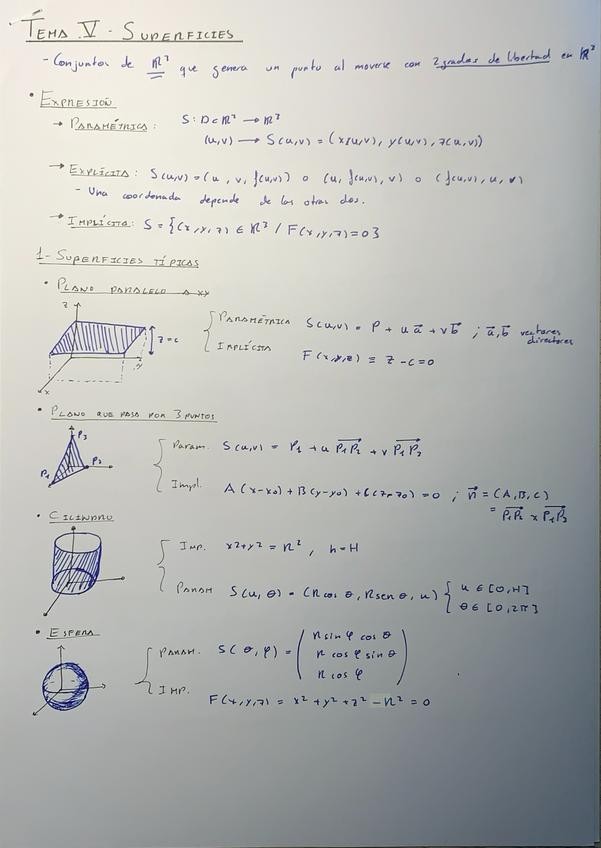 TEMA V - SUPERFICIES
- Conjuntos de ℝ³ que genera un punto al moverse con 2 grados de libertad en ℝ³
• EXPRESIÓN
→ PARAMÉTRICA: S: D⊂ℝ² → ℝ³
(u,v) → S(u,v) = (x(u,v), y(u,v), z(u,v))
→ EXPLÍCITA: S(u,v) = (u, v, f(u,v)) o (u, f(u,v), v) o (f(u,v), u, v)
- Una coordenada depende de las otras dos.
→ IMPLÍCITA: S = {(x,y,z) ∈ ℝ³ / F(x,y,z)=0}
1- SUPERFICIES TÍPICAS
• PLANO PARALELO A XY
z
z=c
y
x
PARAMÉTRICA S(u,v) = P + u a⃗ + v b⃗ ; a⃗,b⃗ vectores directores
IMPLÍCITA F(x,y,z) ≡ z - c = 0
• PLANO QUE PASA POR 3 PUNTOS
P₃
P₂
P₁
Param. S(u,v) = P₁ + u P₁P₂ + v P₁P₃
Impl. A(x-x₀) + B(y-y₀) + C(z-z₀) = 0 ; n⃗ = (A,B,C)
= P₁P₂ x P₁P₃
• CILINDRO
IMP. x²+y² = R² , h=H
PARAM S(u,θ) = (R cos θ, R sen θ, u) { u ∈ [0,H]
θ ∈ [0,2π]
• ESFERA
PARAM. S(θ,φ) = ( R sin φ cos θ
R cos φ sin θ
R cos φ )
IMP.
F(x,y,z) = x² + y² + z² - R² = 0